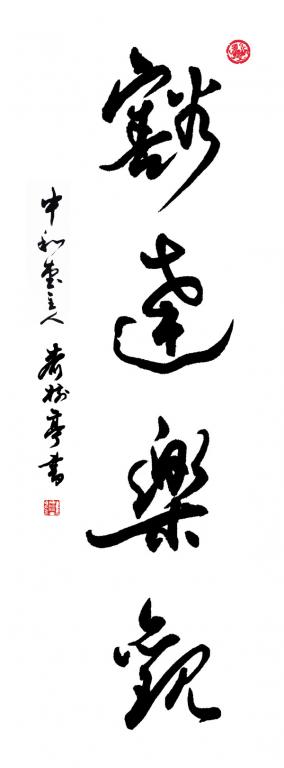 豁達樂觀
中和堂主人 喬樹亭書